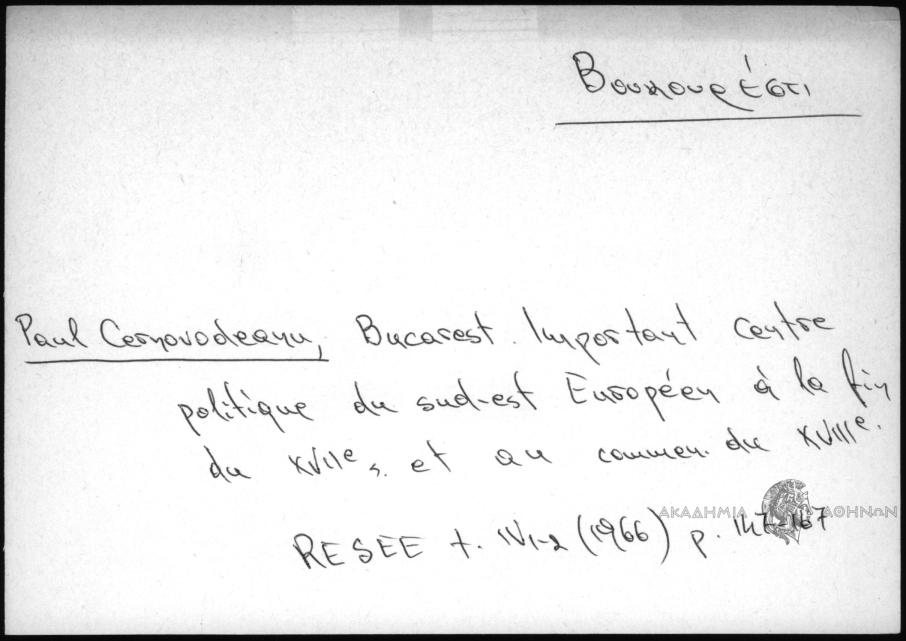 Βουκουρέστι
Paul Cernovodeanu, Bucarest. Important centre
politique du sud-est Européen à la fin
du XVIIe s. et au commen. du XVIIIe.
ΑΚΑΔΗΜΙΑ ΑΘΗΝΩΝ
RESEE t. IV1-2 (1966) p. 147-167